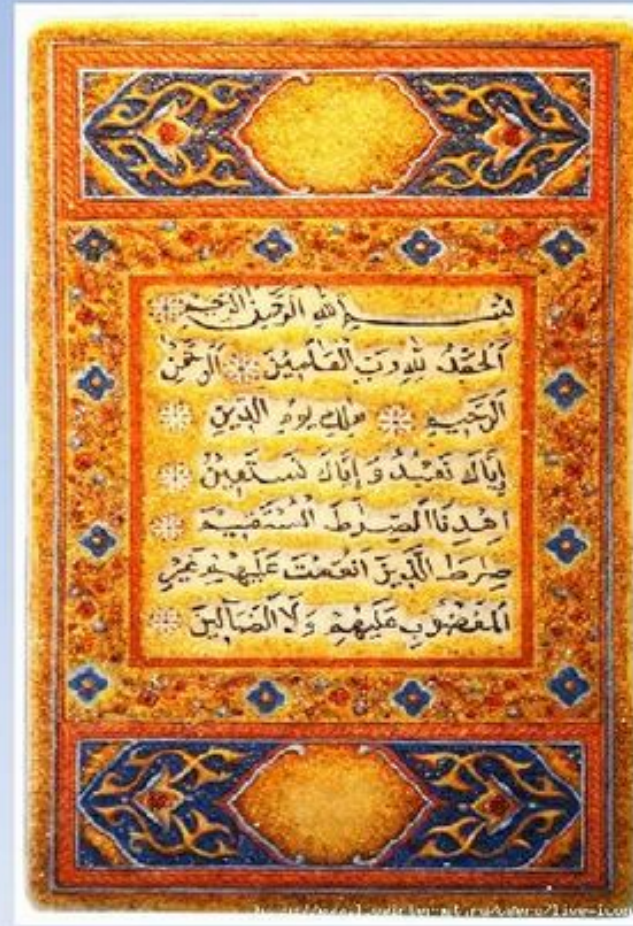 بِسْمِ اللهِ الرَّحْمٰنِ الرَّحِيْمِ
اَلْحَمْدُ لِلّٰهِ رَبِّ الْعَالَمِيْنَ الرَّحْمٰنِ
الرَّحِيْمِ مٰلِكِ يَوْمِ الدِّيْنِ
إِيَّاكَ نَعْبُدُ وَ إِيَّاكَ نَسْتَعِيْنُ
اِهْدِنَا الصِّرَاطَ الْمُسْتَقِيْمَ
صِرَاطَ الَّذِيْنَ اَنْعَمْتَ عَلَيْهِمْ غَيْرِ
الْمَغْضُوْبِ عَلَيْهِمْ وَلَا الضَّآلِّيْنَ